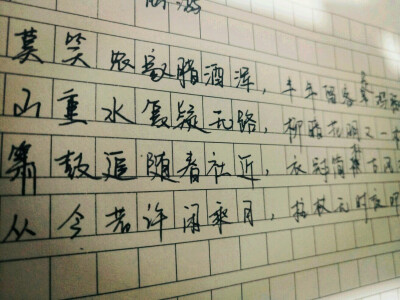 莫笑农家腊酒浑，丰年留客足鸡豚
山重水复疑无路，柳暗花明又一村
箫鼓追随春社近，衣冠简朴古风
从今若许闲乘月，拄杖无时夜叩